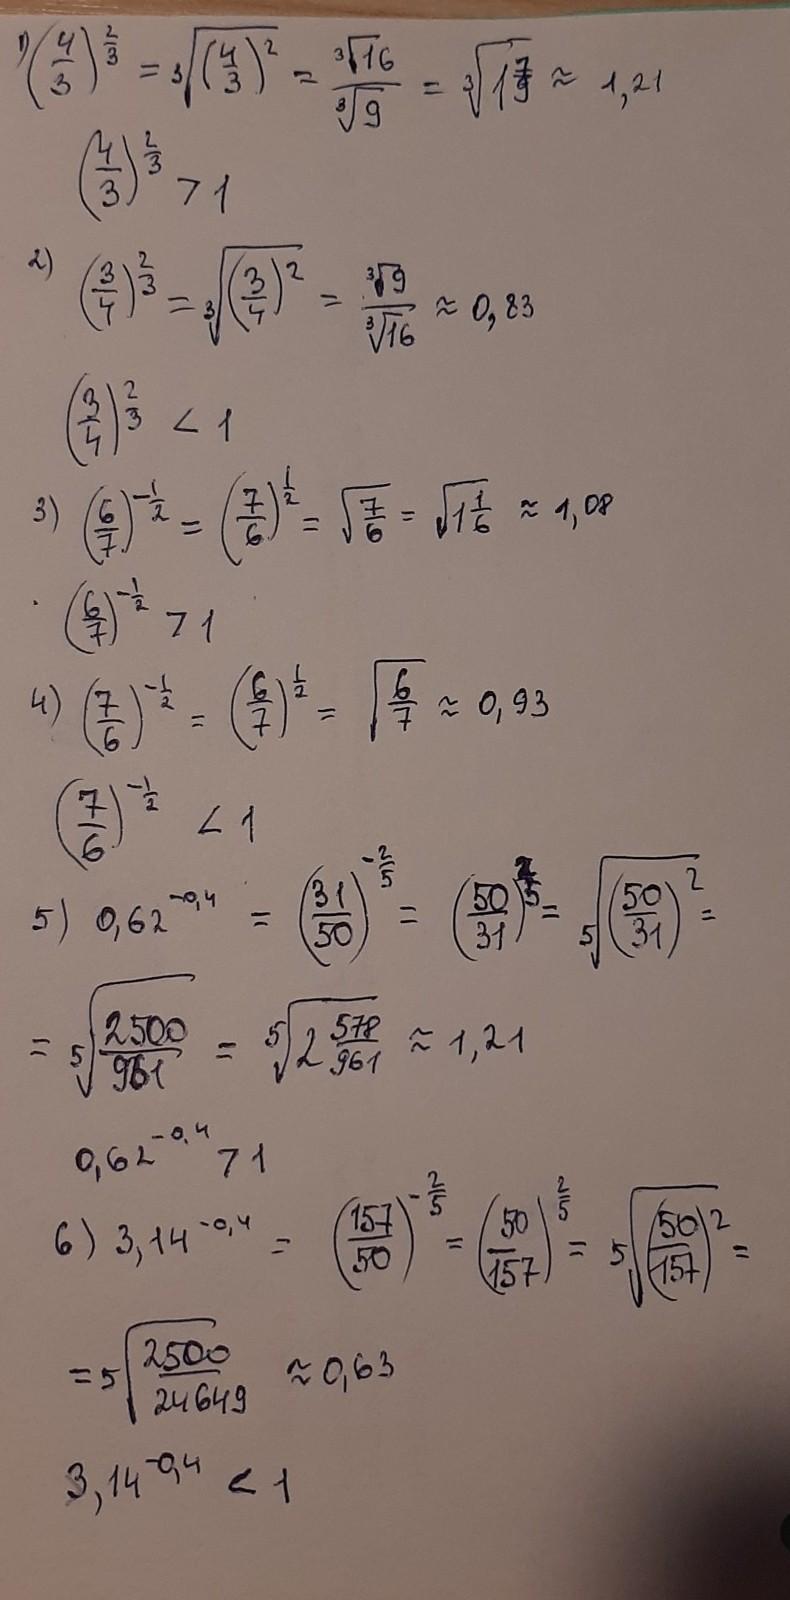 1) (4/3)^(2/3) = ∛((4/3)^2) = ∛16/∛9 = ∛(1 7/9) ≈ 1,21
(4/3)^(2/3) > 1
2) (3/4)^(2/3) = ∛((3/4)^2) = ∛9/∛16 ≈ 0,83
(3/4)^(2/3) < 1
3) (6/7)^(-1/2) = (7/6)^(1/2) = √(7/6) = √(1 1/6) ≈ 1,08
(6/7)^(-1/2) > 1
4) (7/6)^(-1/2) = (6/7)^(1/2) = √(6/7) ≈ 0,93
(7/6)^(-1/2) < 1
5) 0,62^(-0,4) = (31/50)^(-2/5) = (50/31)^(2/5) = ⁵√((50/31)^2) =
= ⁵√(2500/961) = ⁵√(2 578/961) ≈ 1,21
0,62^(-0,4) > 1
6) 3,14^(-0,4) = (157/50)^(-2/5) = (50/157)^(2/5) = ⁵√((50/157)^2) =
= ⁵√(2500/24649) ≈ 0,63
3,14^(-0,4) < 1